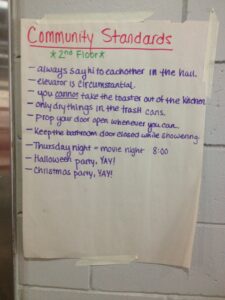 Community Standards
*2nd Floor*
- always say hi to eachother in the hall.
- elevator is circumstantial.
- you cannot take the toaster out of the kitchen.
- only dry things in the trash cans.
- Prop your door open whenever you can.
- Keep the bathroom door closed while showering.
- Thursday night = movie night 8:00
- Halloween party, YAY!
- Christmas party, YAY!